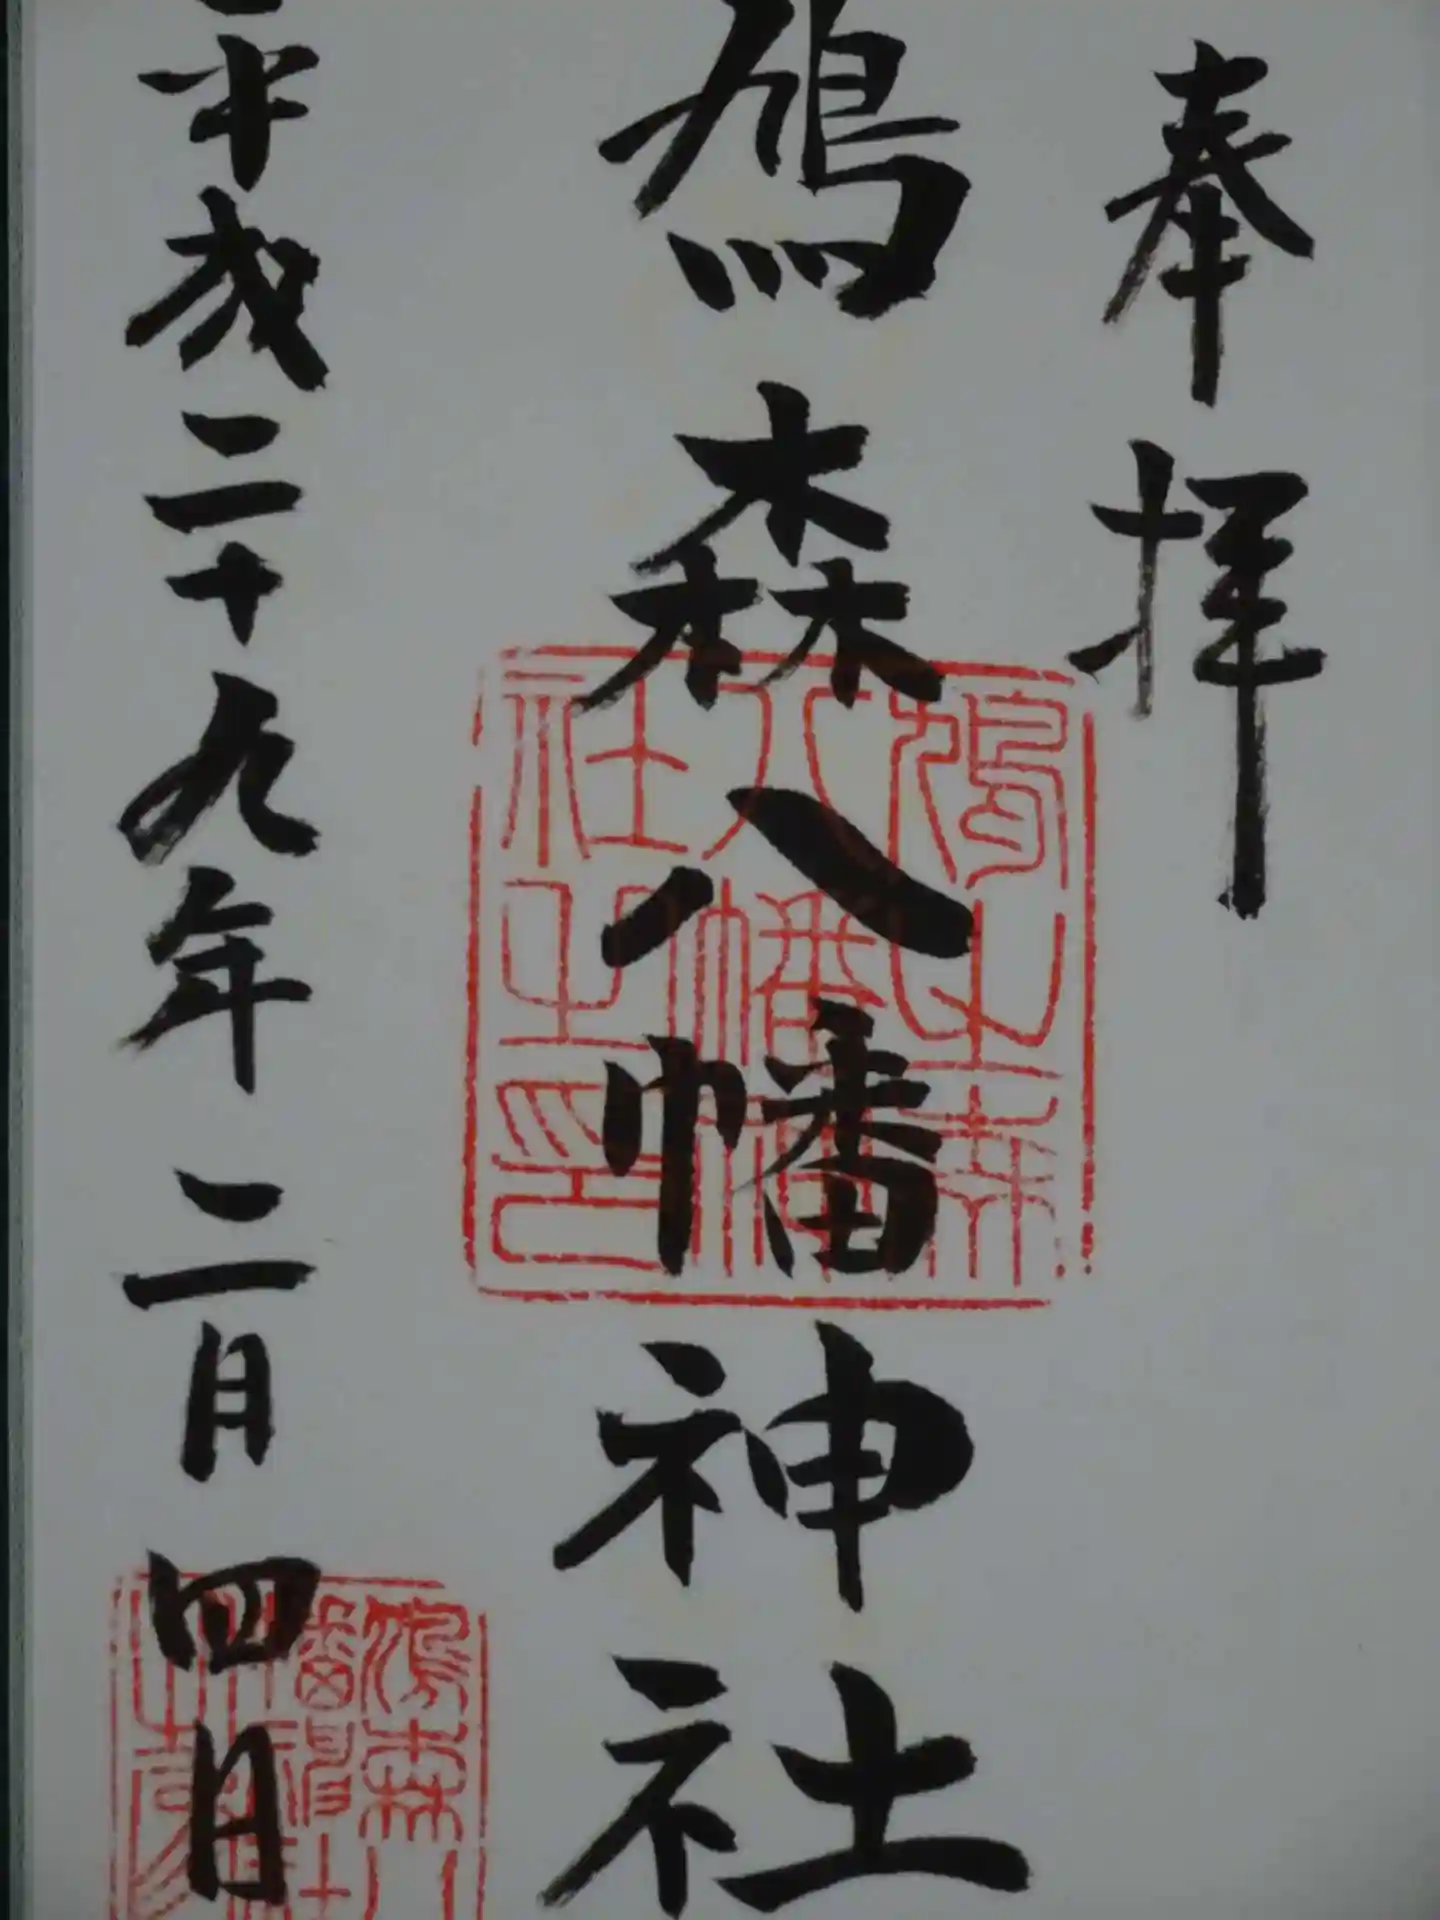 奉拝
鳩森八幡神社
平成二十九年二月四日
鳩之森
八幡神
社之印